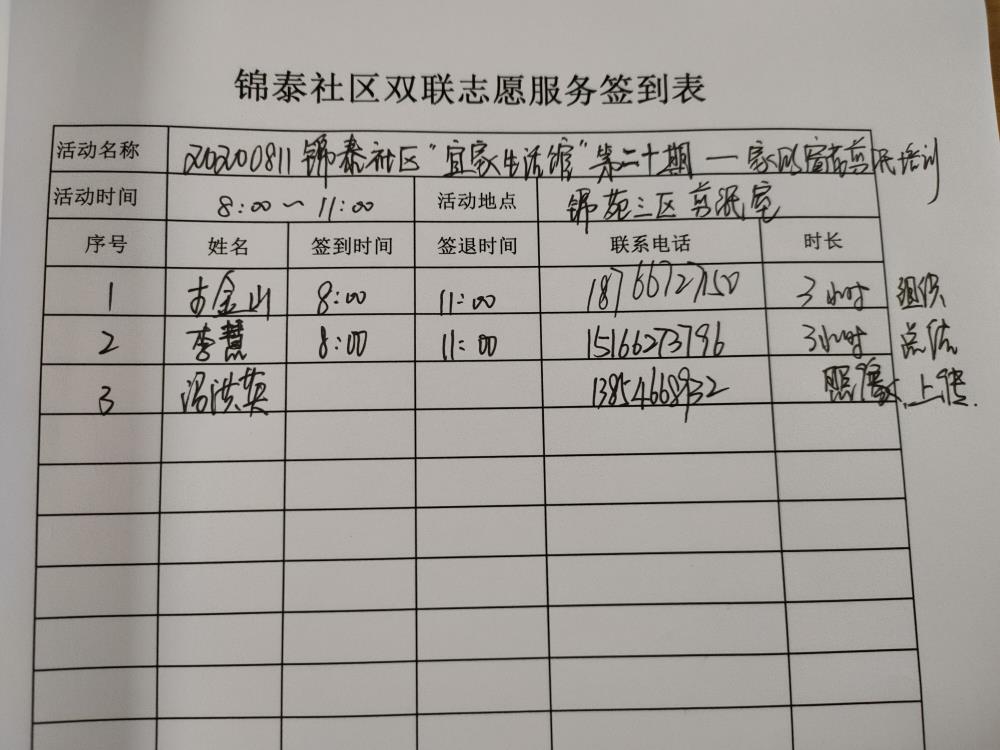 锦泰社区双联志愿服务签到表
活动名称 20200811锦泰社区“宜家生活馆”第二十期—家风窗花剪纸培训
活动时间 8:00～11:00 活动地点 锦苑三区剪纸室
序号 姓名 签到时间 签退时间 联系电话 时长
1 金山 8:00 11:00 18766727150 3小时 组织
2 李慧 8:00 11:00 15166273796 3小时 总结
3 冯洪英 13854668932 照像、上传.